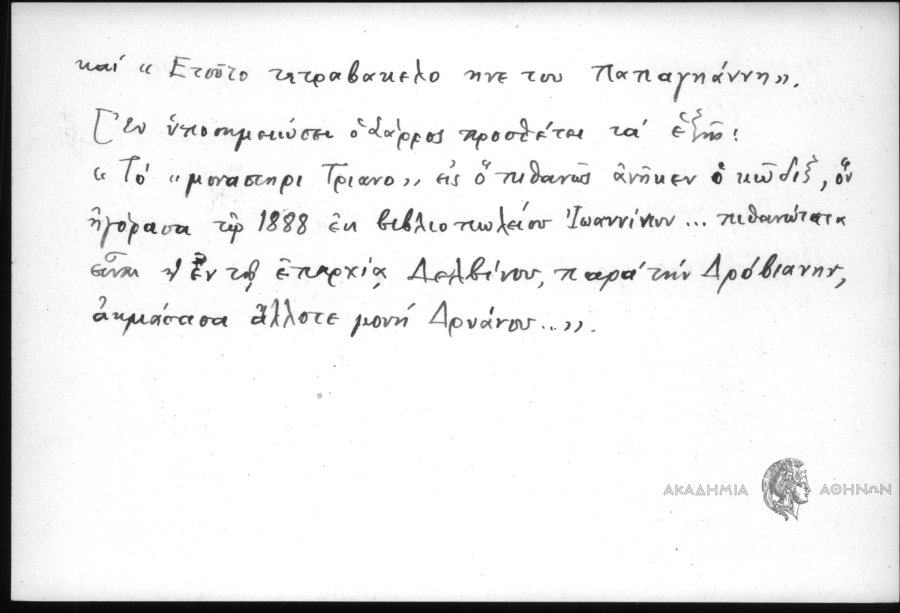 καί « Ετοῦτο τετραβακελο ηνε του Παπαγηάννη».
[Ἐν ὑποσημειώσει ὁ Δάρρος προσθέτει τά ἑξῆς:
« Τό « μοναστηρι Τριανο» εἰς ὅ πιθανῶς ἀνῆκεν ὁ κῶδιξ, ὅν
ἠγόρασα τῷ 1888 ἐκ βιβλιοπωλείου Ἰωαννίνων ... πιθανώτατα
εἶναι ἡ ἐν τῇ ἐπαρχίᾳ Δελβίνου, παρά τήν Δρόβιανην,
ἀκμάσασα ἄλλοτε μονή Δρυάνου...».
ΑΚΑΔΗΜΙΑ ΑΘΗΝΩΝ